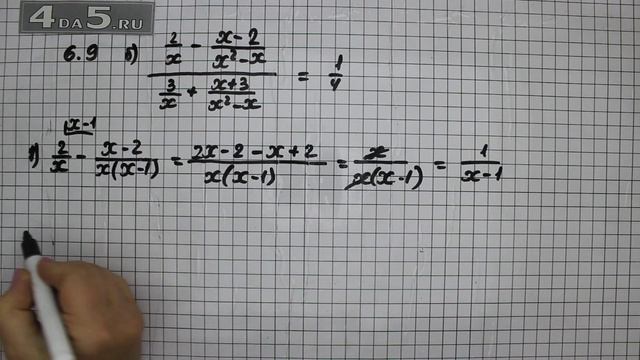 4DA5.RU
6.9 б) (2/x - (x-2)/(x²-x)) / (3/x + (x+3)/(x²-x)) = 1/4
1) 2/x |x-1 - (x-2)/(x(x-1)) = (2x-2-x+2)/(x(x-1)) = x/(x(x-1)) = 1/(x-1)